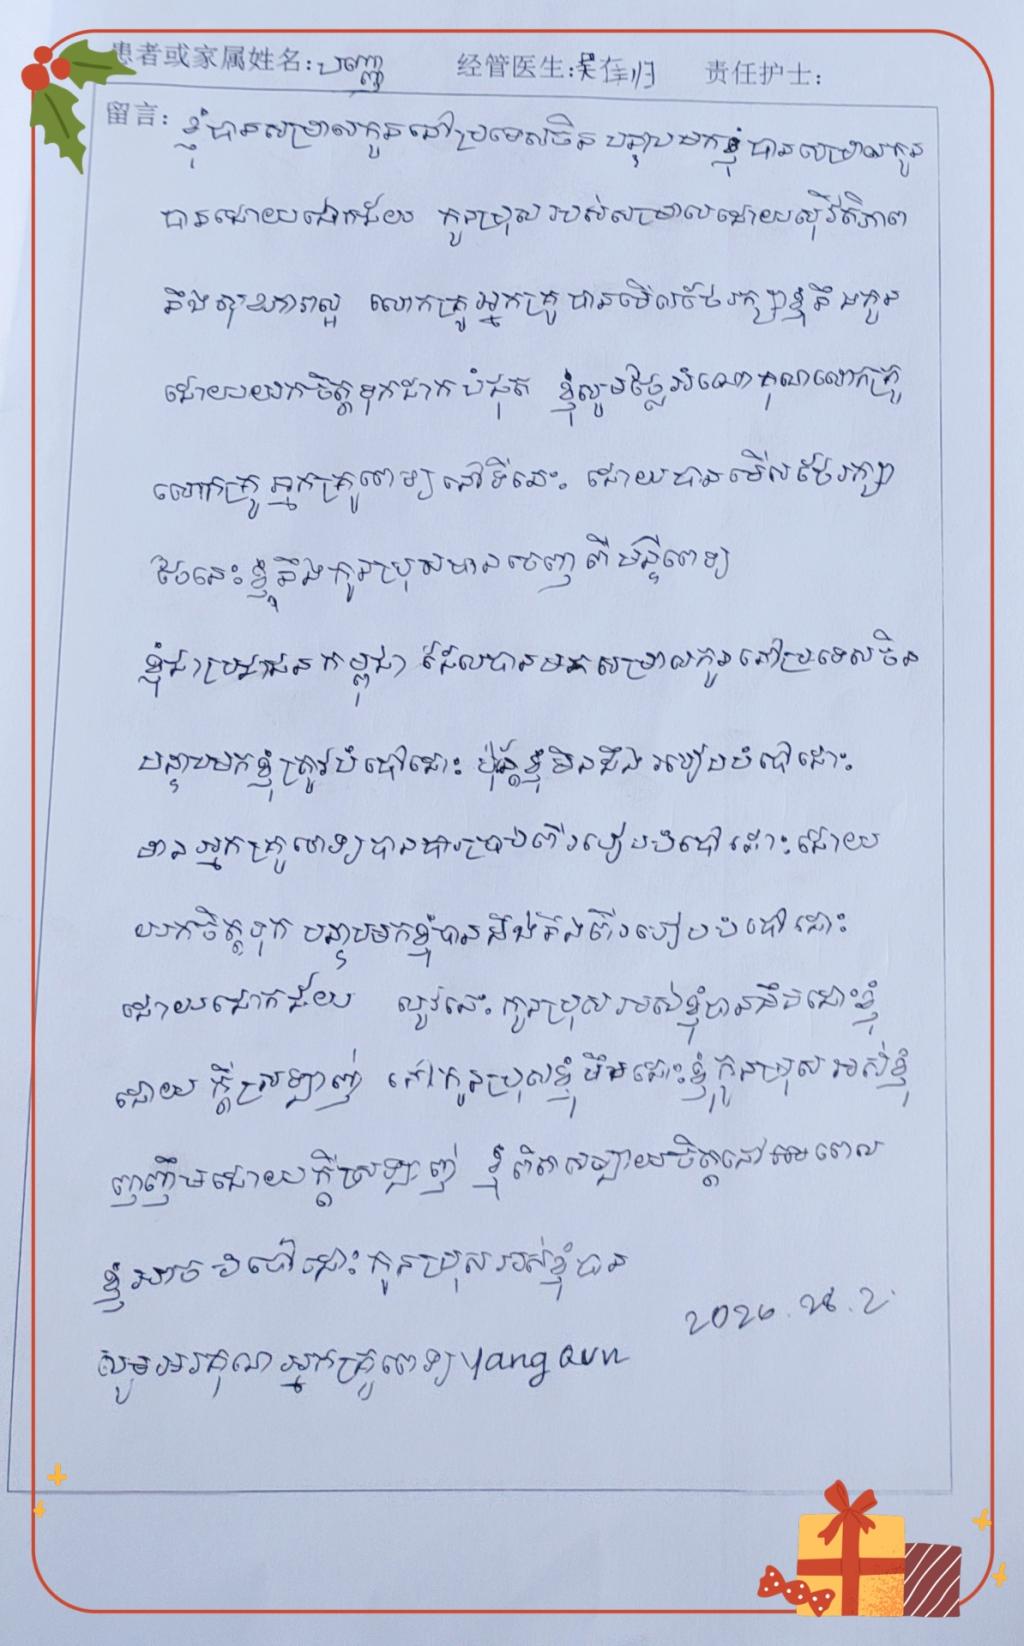 患者或家属姓名: បញ្ញា 经管医生: 归 责任护士:
留言: ខ្ញុំបានសម្រាលកូននៅប្រទេសចិន បន្ទាប់មកខ្ញុំបានសម្រាលកូន
បានដោយជោគជ័យ កូនប្រុសរបស់សម្រាលដោយសុវត្ថិភាព
នឹងសុខភាពល្អ លោកគ្រូអ្នកគ្រូបានមើលថែរក្សាខ្ញុំនឹងកូន
ដោយយកចិត្តទុកដាក់បំផុត ខ្ញុំសូមថ្លែងអំណរគុណលោកគ្រូ
លោកគ្រូ អ្នកគ្រូពេទ្យនៅទីនេះ ដោយបានមើលថែរក្សា
ថ្ងៃនេះខ្ញុំនឹងកូនប្រុសបានចេញពីមន្ទីរពេទ្យ
ខ្ញុំជាប្រជាជនកម្ពុជា ដែលបានមកសម្រាលកូននៅប្រទេសចិន
បន្ទាប់មកខ្ញុំត្រូវបំបៅដោះ ប៉ុន្តែខ្ញុំមិនដឹងរបៀបបំបៅដោះ
មានអ្នកគ្រូពេទ្យបានប្រាប់ពីរបៀបបំបៅដោះដោយ
យកចិត្តទុក បន្ទាប់មកខ្ញុំបានដឹងពីរបៀបបំបៅដោះ
ដោយជោគជ័យ លូវនេះ កូនប្រុសរបស់ខ្ញុំបានជឹបដោះខ្ញុំ
ដោយក្តីស្រឡាញ់ ពេលកូនប្រុសខ្ញុំជឹបដោះខ្ញុំ កូនប្រុសរបស់ខ្ញុំ
ញញឹមដោយក្តីស្រឡាញ់ ខ្ញុំពិតជាសប្បាយចិត្តនៅពេល
ខ្ញុំអាចបំបៅដោះកូនប្រុសរបស់ខ្ញុំបាន
សូមអរគុណអ្នកគ្រូពេទ្យ yang qun